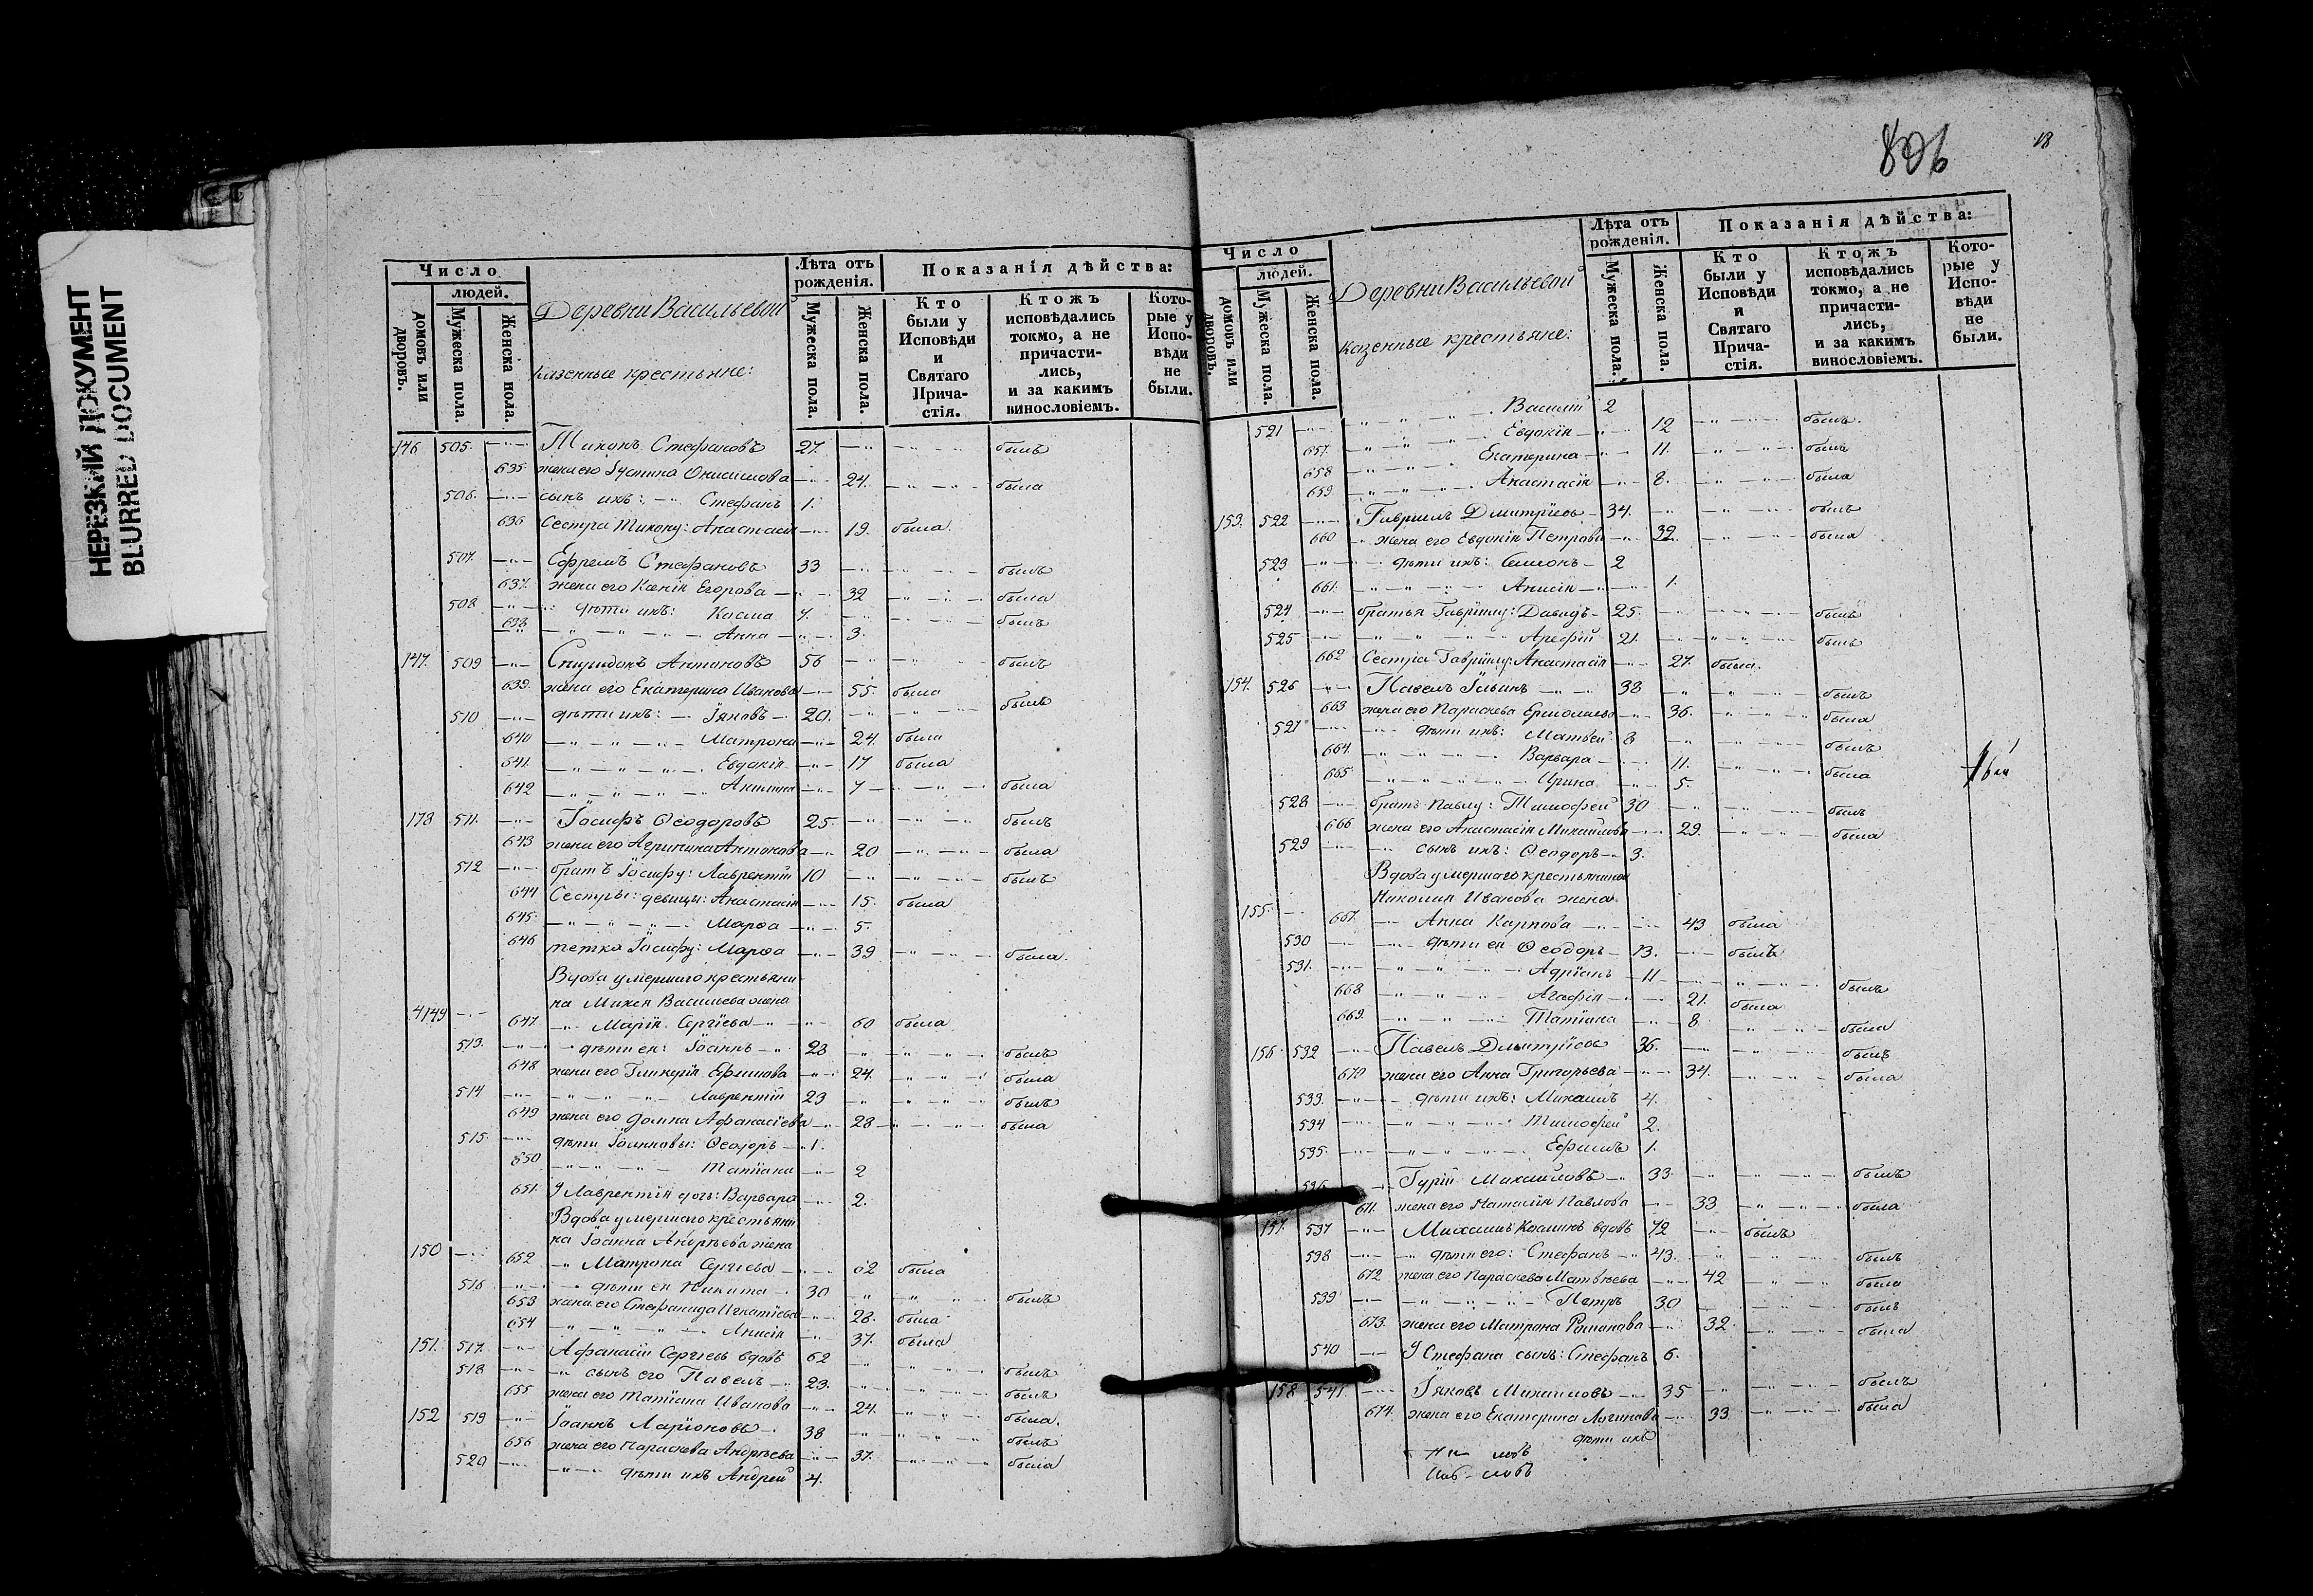 НЕРЕЗКИЙ ДОКУМЕНТ
BLURRED DOCUMENT
Число
людей.
домовъ или дворовъ.
Мужеска пола.
Женска пола.
Деревни Васильевой
казенные крестьяне:
Лѣта отъ рожденія.
Мужеска пола.
Женска пола.
Показанія дѣйства:
Кто были у Исповѣди и Святаго Прича-стія.
Ктожъ исповѣдались токмо, а не причасти-лись, и за какимъ винословіемъ.
Кото-рые у Испо-вѣди не были.
146 505. Тихонъ Стефановъ 27. былъ
635. жена его Іустина Онисимова 24. была
506. сынъ ихъ: Стефанъ 1.
636 Сестра Тихону: Анастасія 19. была
507. Ефремъ Стефановъ 33 былъ
637. жена его Ксенія Егорова 32 была
508. дѣти ихъ: Косма 7. былъ
638 Анна 3.
147. 509 Спиридонъ Антоновъ 56 былъ
639. жена его Екатерина Иванова 55. была
510 дѣти ихъ: Іяковъ 20. былъ
640 Матрона 24. была
641. Евдокія 17 была
642 Акилина 7 была
148 511. Іосифъ Ѳеодоровъ 25. былъ
643 жена его Агрипина Антонова 20 была
512 братъ Іосифу: Лаврентій 10 былъ
644 Сестры: девицы: Анастасія 15. была
645. Марѳа 5.
646 тетка Іосифу: Марѳа 39 была.
Вдова умершаго крестьяни-
на Михея Васильева жена
149 647. Марія Сергіева 60 была
513. дѣти ея: Іоаннъ 28 былъ
648 жена его Гликерія Ефимова 24. была
514 Лаврентій 23 былъ
649 жена его Домна Афанасіева 23 была
515. дѣти Іоанновы: Ѳеодоръ 1.
650 Татіана 2
651. У Лаврентія дочь: Варвара 2.
Вдова умершаго крестьяни-
на Іоанна Андреева жена
150 652 Матрона Сергіева 62 была
516 дѣти ея Никита 30 былъ
653 жена его Стефанида Игнатіева 28. была
654 Анисія 37. была
151. 517. Афанасій Сергіевъ вдовъ 62 былъ
518 сынъ его Павелъ 23. былъ
655 жена его Татіана Иванова 24. была.
152 519 Іоаннъ Ларіоновъ 38 былъ
656 жена его Параскева Андреева 37. была
520 дѣти ихъ Андрей 4.
806
18
Число
людей.
домовъ или дворовъ.
Мужеска пола.
Женска пола.
Деревни Васильевой
казенные крестьяне:
Лѣта отъ рожденія.
Мужеска пола.
Женска пола.
Показанія дѣйства:
Кто были у Исповѣди и Святаго Прича-стія.
Ктожъ исповѣдались токмо, а не причасти-лись, и за какимъ винословіемъ.
Кото-рые у Испо-вѣди не были.
521 Василій 2
657. Евдокія 12 былъ.
658 Екатерина 11. былъ
659 Анастасія 8. была
153. 522 Гавріилъ Дмитріевъ 34. былъ
660 жена его Евдокія Петрова 32 была
523 дѣти ихъ: Симонъ 2
661. Анисія 1.
524 братья Гавріилу: Давидъ 25. былъ
525 Арефій 21. былъ
662 Сестра Гавріилу: Анастасія 27. была.
154. 526 Павелъ Ильинъ 38 былъ
663 жена его Параскева Ермолаева 36. была
527 дѣти ихъ: Матвей 8 былъ
664. Варвара 11. была
665 Ирина 5.
528 братъ Павлу: Тимофей 30 былъ
666 жена его Анастасія Михайлова 29. была
529 сынъ ихъ: Ѳеодоръ 3.
Вдова умершаго крестьянина
Николая Иванова жена
155. 667. Анна Карпова 43 была
530 дѣти ея Ѳеодоръ 13. былъ
531. Адріанъ 11 былъ
668 Агафія 21. была
669. Татіана 8 была
156 532 Павелъ Дмитріевъ 36. былъ
670 жена его Анна Григорьева 34. была
533. дѣти ихъ: Михаилъ 4.
534 Тимофей 2.
535. Ефимъ 1.
536 Гурій Михайловъ 33 былъ
671. жена его Наталія Павлова 33 была
157. 537 Михаилъ Косминъ вдовъ 72 былъ
538 дѣти его: Стефанъ 43. былъ
672 жена его Параскева Матвѣева 42 была
539 Петръ 30 былъ
673. жена его Матрона Романова 32. была
540 У Стефана сынъ: Стефанъ 6.
158 541. Іяковъ Михаиловъ 35 былъ
674. жена его Екатерина Логинова 33 была
дѣти ихъ